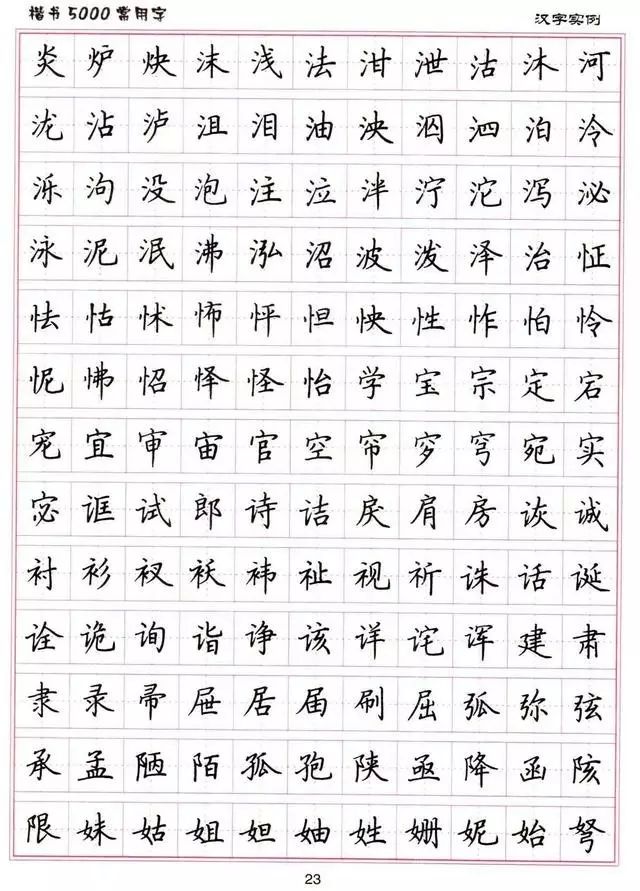 楷书5000常用字
汉字实例
炎炉炔沫浅法泔泄沽沐河
泷沾泸沮泪油泱泅泗泊泠
泺泃没泡注泣泮泞沱泻泌
泳泥泯沸泓沼波泼泽治怔
怯怙怵怖怦怛怏性怍怕怜
怩怫怊怿怪怡学宝宗定宕
宠宜审宙官空帘穸穹宛实
宓诓试郎诗诘戾肩房诙诚
衬衫衩袄袆祉视祈诛话诞
诠诡询诣诤该详诧诨建肃
隶录帚屉居届刷屈弧弥弦
承孟陋陌孤孢陕亟降函陔
限妹姑姐妲妯姓姗妮始弩
23